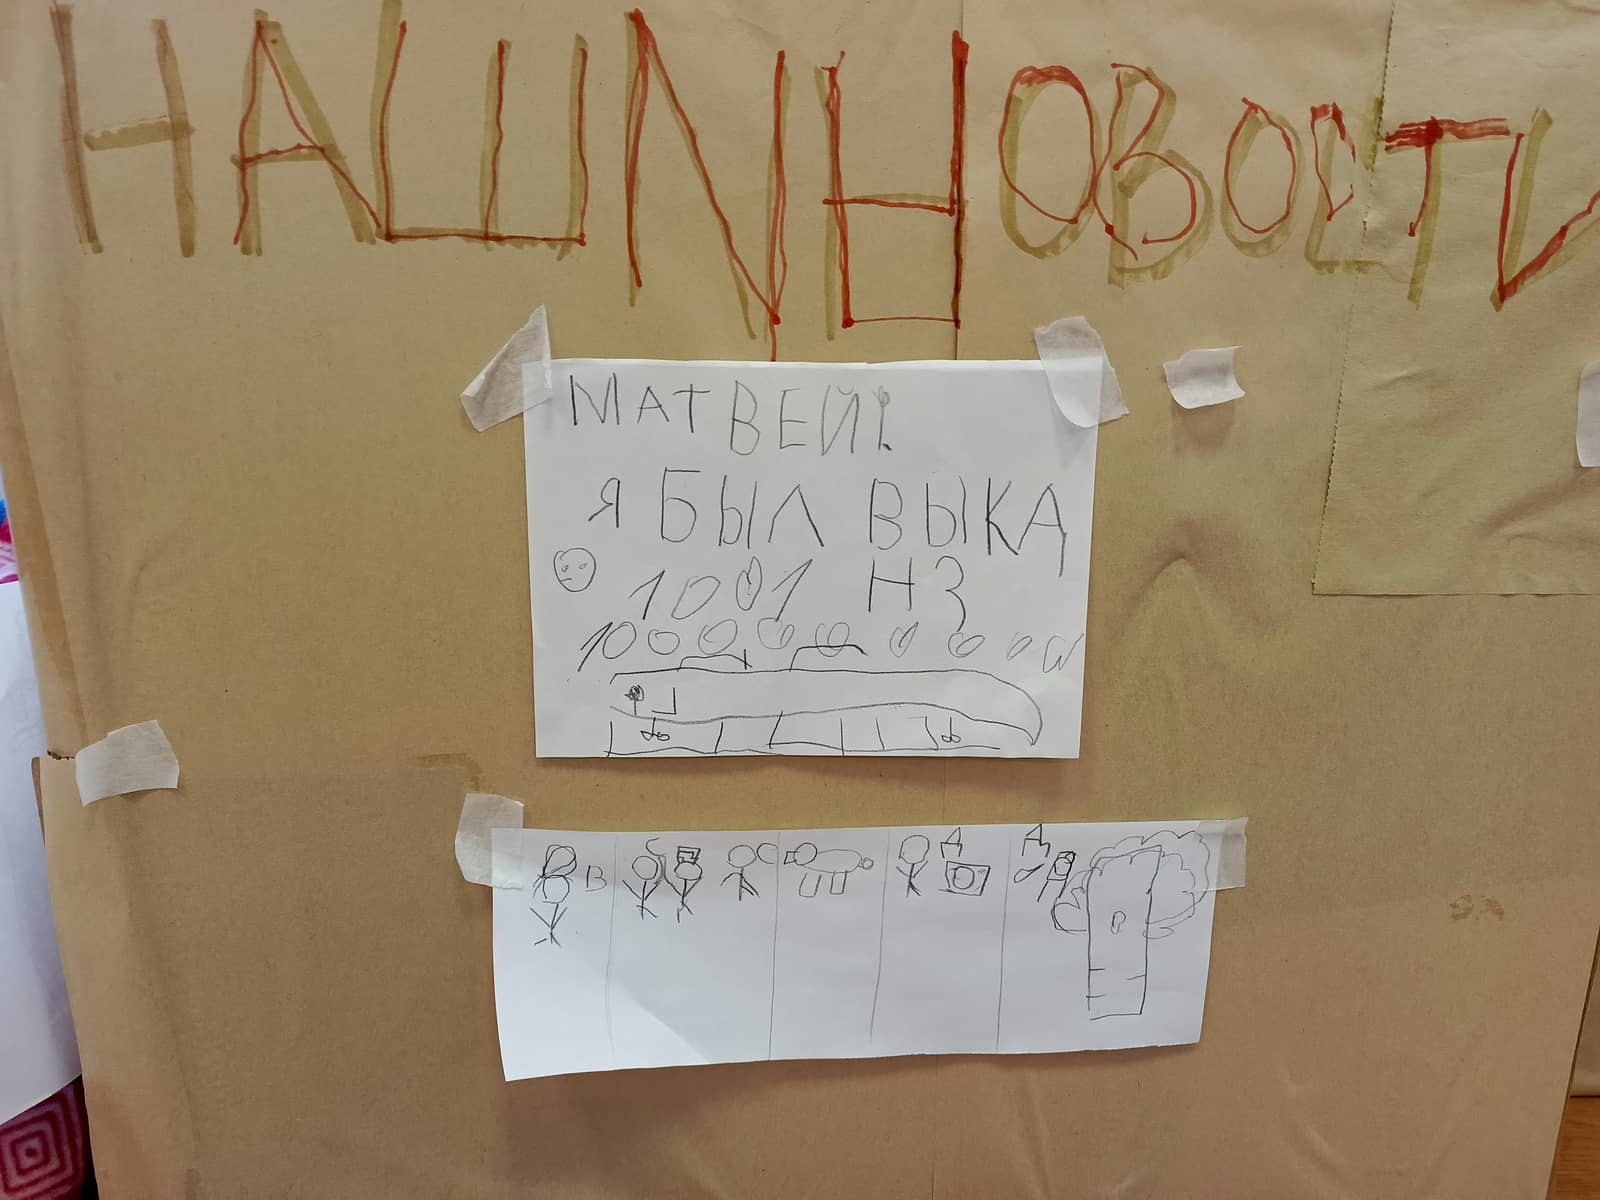 НАШИ НОВОСТИ
МАТВЕЙ!
Я БЫЛ ВЫКА
1001 НЗ
В